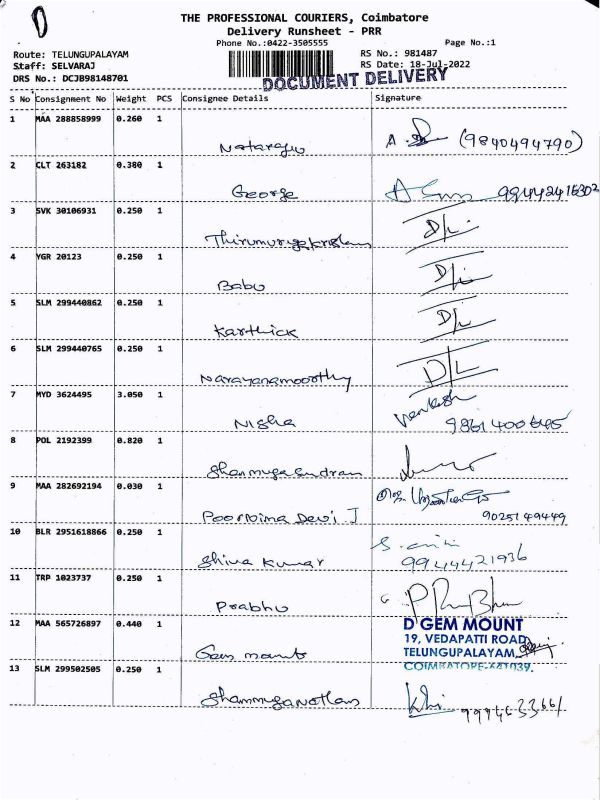 THE PROFESSIONAL COURIERS, Coimbatore
Delivery Runsheet - PRR
Phone No.:0422-3505555
Page No.:1
Route: TELUNGUPALAYAM
RS No.: 981487
Staff: SELVARAJ
RS Date: 18-Jul-2022
DRS No.: DCJB98148701
DOCUMENT DELIVERY
S No Consignment No Weight PCS Consignee Details Signature
1 MAA 288858999 0.260 1
Nataraju (9840494790)
2 CLT 263182 0.380 1
George
3 SVK 30106931 0.250 1
D/L
4 YGR 20123 0.250 1
Babu D/L
5 SLM 299440862 0.250 1
Karthick D/L
6 SLM 299440765 0.250 1
Narayanamoorthy D/L
7 MYD 3624495 3.050 1
Nisha Venkesh
8 POL 2192399 0.820 1
9 MAA 282692194 0.030 1
Poornima Devi J 9025149449
10 BLR 2951618866 0.250 1
Shiva Kumar 9944421936
11 TRP 1023737 0.250 1
Prabhu
12 MAA 565726897 0.440 1
Gem mount
D'GEM MOUNT
19, VEDAPATTI ROAD,
TELUNGUPALAYAM,
COIMBATORE-641039.
13 SLM 299502505 0.250 1
Shanmuganathan